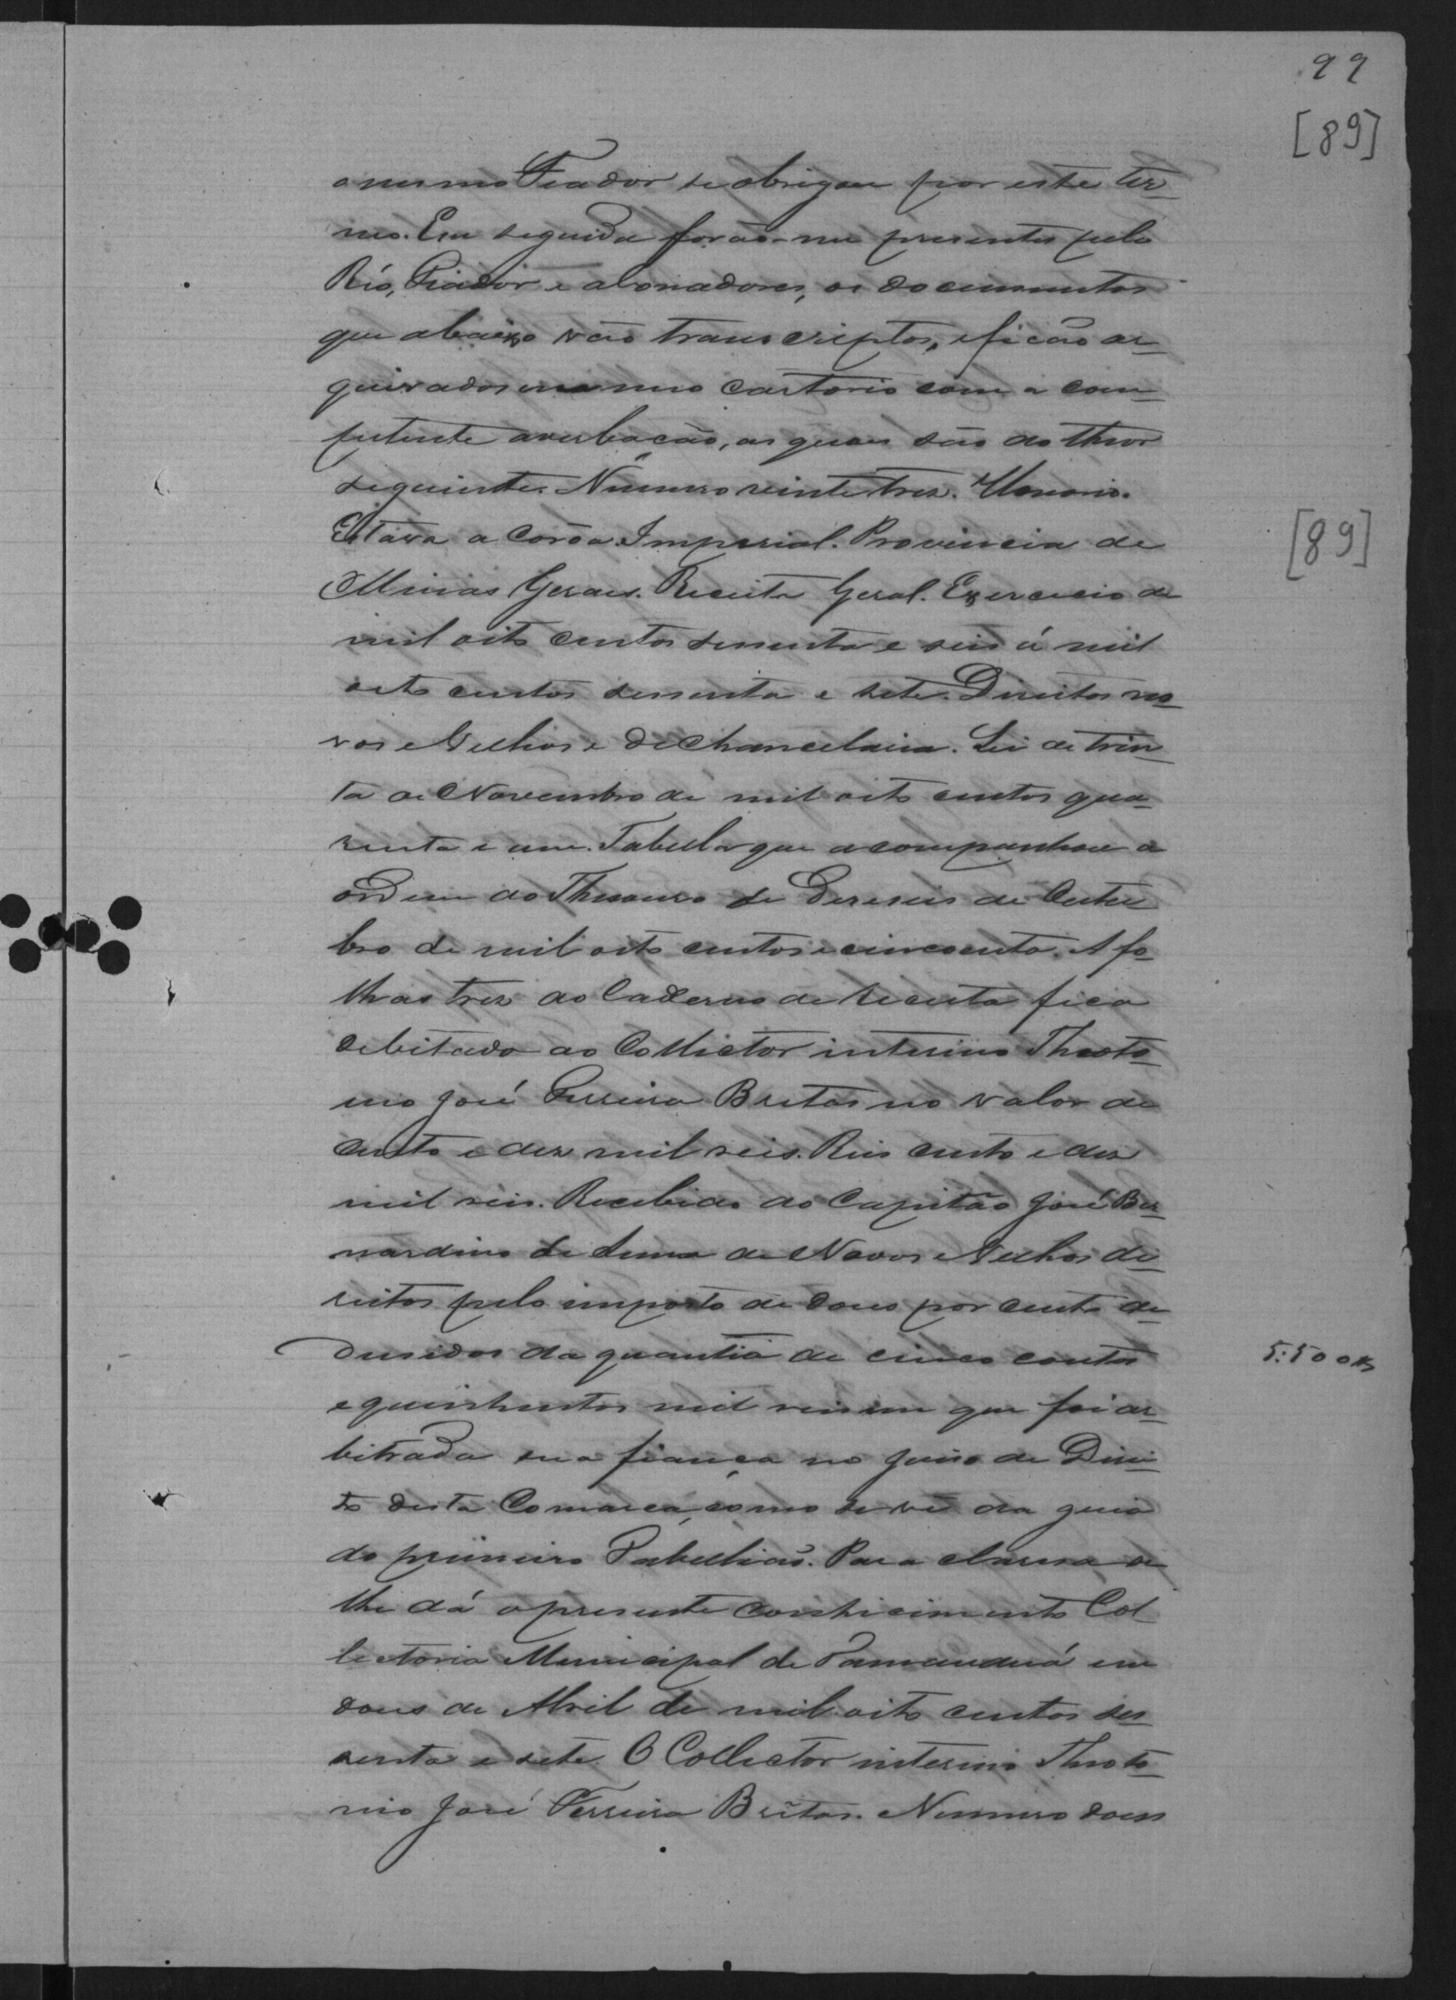 99
[89]
o mesmo Fiador se obrigou por este ter-
mo. Em seguida forão-me presentes pelo
Réo, Fiador e abonadores, os documentos
que abaixo vão transcriptos, e ficão ar-
quivados em meo cartorio com a com-
petente averbação, os quaes são do theor
seguinte. Numero vinte tres.
Estava a Corôa Imperial. Provincia de
[89]
Minas Geraes. Receita Geral. Exercicio de
mil oito centos sessenta e seis á mil
oito centos sessenta e sete. Direitos no-
vos e Velhos e de Chancelaria. Lei de trin-
ta de Novembro de mil oito centos qua-
renta e um. Tabella que acompanhou a
ordem do Thesouro de Deseseis de Outu
bro de mil oito centos e cincoenta. A fo-
lhas tres do Caderno de receita fica
debitado ao Collector interino Theoto-
nio José Ferreira Britas no valor de
cento e dez mil reis. Reis cento e dez
mil reis. Recebido do Capitão José Ber-
nardino de Lima de Novos e Velhos di-
reitos pelo imposto de dous por cento de-
dusidos da quantia de cinco contos
5:500$
e quinhentos mil reis em que foi ar-
bitrada sua fiança no Juiso de Direi-
to desta Comarca, como se vê da guia
do primeiro Tabellião. Para clareza se
lhe dá o presente conhicimento Col
lectoria Municipal de Tamanduá em
dous de Abril de mil oito centos ses-
senta e sete. O Collector interino Theoto-
nio José Ferreira Britas. Numero dous